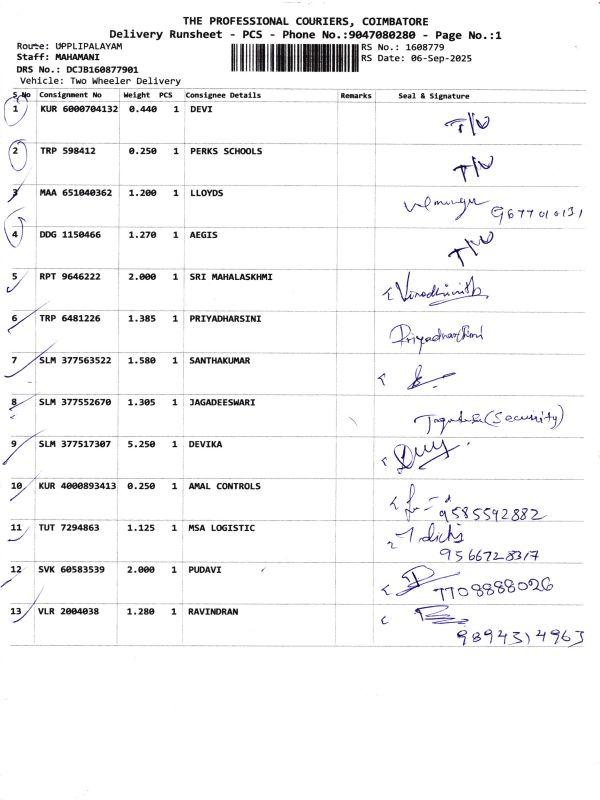 THE PROFESSIONAL COURIERS, COIMBATORE
Delivery Runsheet - PCS - Phone No.:9047080280 - Page No.:1
Route: UPPLIPALAYAM RS No.: 1608779
Staff: MAHAMANI RS Date: 06-Sep-2025
DRS No.: DCJB160877901
Vehicle: Two Wheeler Delivery
S.No Consignment No Weight PCS Consignee Details Remarks Seal & Signature
1 KUR 6000704132 0.440 1 DEVI
2 TRP 598412 0.250 1 PERKS SCHOOLS
3 MAA 651040362 1.200 1 LLOYDS 9677010131
4 DDG 1150466 1.270 1 AEGIS
5 RPT 9646222 2.000 1 SRI MAHALASKHMI
6 TRP 6481226 1.385 1 PRIYADHARSINI Priyadharshini
7 SLM 377563522 1.580 1 SANTHAKUMAR
8 SLM 377552670 1.305 1 JAGADEESWARI (Security)
9 SLM 377517307 5.250 1 DEVIKA
10 KUR 4000893413 0.250 1 AMAL CONTROLS 9585592882
11 TUT 7294863 1.125 1 MSA LOGISTIC 9566728317
12 SVK 60583539 2.000 1 PUDAVI 7708888026
13 VLR 2004038 1.280 1 RAVINDRAN 9894314963